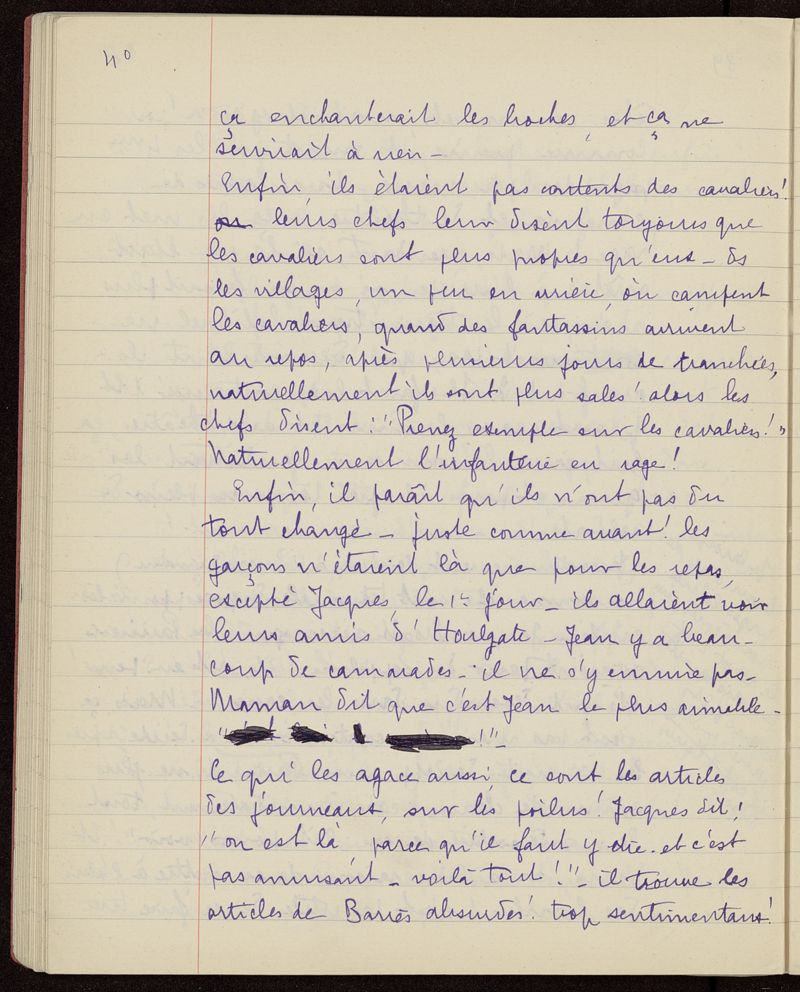 40
ça enchanterait les boches, et ça ne
servirait à rien -
Enfin, ils étaient pas contents des cavaliers!
leurs chefs leur disent toujours que
les cavaliers sont plus propres qu'eux - ds
les villages, un peu en arrière, où campent
les cavaliers, quand des fantassins arrivent
au repos, après plusieurs jours de tranchées,
naturellement ils sont plus sales! alors les
chefs disent: "Prenez exemple sur les cavaliers!"
Naturellement l'infanterie en rage!
Enfin, il paraît qu'ils n'ont pas du
tout changé - juste comme avant! les
garçons n'étaient là que pour les repas,
excepté Jacques, le 1r jour - ils allaient voir
leurs amis d'Houlgate - Jean y a beau-
coup de camarades - il ne s'y ennuie pas -
Maman dit que c'est Jean le plus aimable -
" !" -
Ce qui les agace aussi, ce sont les articles
des journeaux, sur les poilus! Jacques dit!
"on est là parce qu'il faut y être et c'est
pas amusant - voilà tout!" - il trouve les
articles de Barrès absurdes! trop sentimentaux!